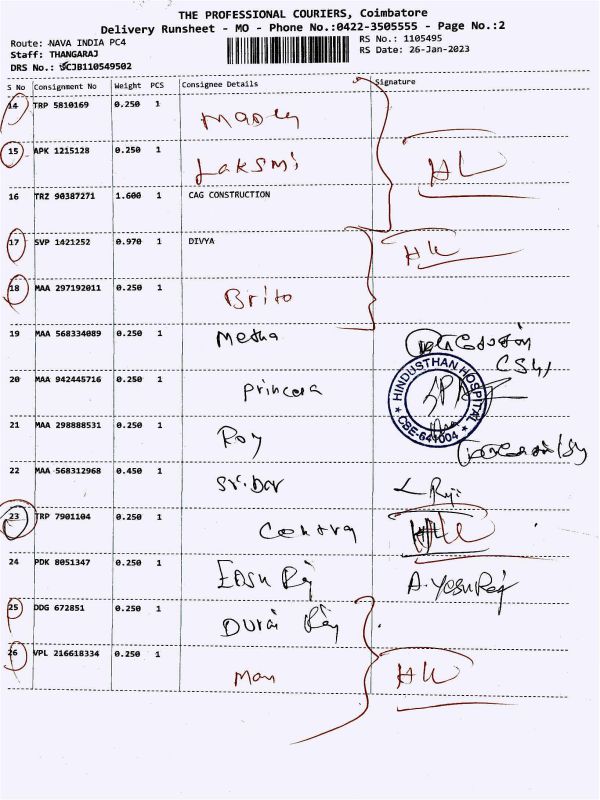 THE PROFESSIONAL COURIERS, Coimbatore
Delivery Runsheet - MO - Phone No.:0422-3505555 - Page No.:2
Route: NAVA INDIA PC4
RS No.: 1105495
Staff: THANGARAJ
RS Date: 26-Jan-2023
DRS No.: SCJB110549502
S No Consignment No Weight PCS Consignee Details Signature
14 TRP 5810169 0.250 1
15 APK 1215128 0.250 1 Laksmi
16 TRZ 90387271 1.600 1 CAG CONSTRUCTION
17 SVP 1421252 0.970 1 DIVYA
18 MAA 297192011 0.250 1 Brito
19 MAA 568334089 0.250 1
20 MAA 942445716 0.250 1
HINDUSTHAN HOSPITAL
CBE-641004
21 MAA 298888531 0.250 1 Roy
22 MAA 568312968 0.450 1
23 TRP 7901104 0.250 1
24 PDK 8051347 0.250 1 A. Yesu Raj
25 DDG 672851 0.250 1 Durai Raj
26 VPL 216618334 0.250 1 Man